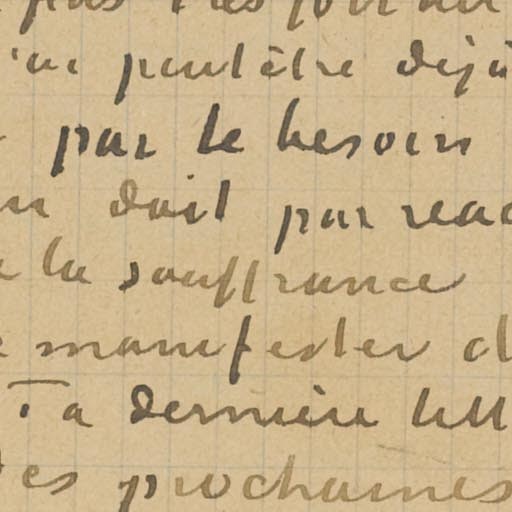 pas très
'ai peut être déjà
par le besoin
doit par reac
la souffrance
manifester d
Ta dernière lett
des prochaines